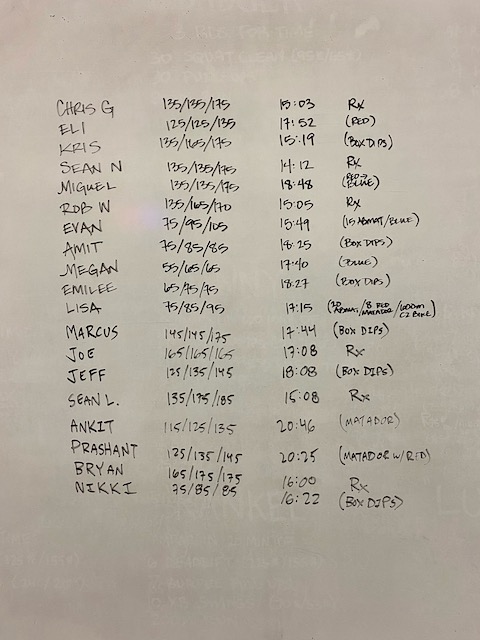 CHRIS G 135/135/175 15:03 Rx
ELI 125/125/135 17:52 (RED)
KRIS 135/165/175 15:19 (BOX DIPS)
SEAN N 135/135/175 14:12 Rx
MIGUEL 135/135/175 18:48 (RED→BLUE)
ROB W 135/165/170 15:05 Rx
EVAN 75/95/105 15:49 (15 ABMAT/BLUE)
AMIT 75/85/85 18:25 (BOX DIPS)
MEGAN 55/65/65 17:40 (BLUE)
EMILEE 65/75/75 18:27 (BOX DIPS)
LISA 75/85/95 17:15 (20 ABMAT/8 RED MATADOR/1000m C2 BIKE)
MARCUS 145/145/175 17:44 (BOX DIPS)
JOE 165/165/165 17:08 Rx
JEFF 125/135/145 18:08 (BOX DIPS)
SEAN L. 135/175/185 15:08 Rx
ANKIT 115/125/135 20:46 (MATADOR)
PRASHANT 125/135/145 20:25 (MATADOR W/RED)
BRYAN 165/175/175 16:00 Rx
NIKKI 75/85/85 16:22 (BOX DIPS)